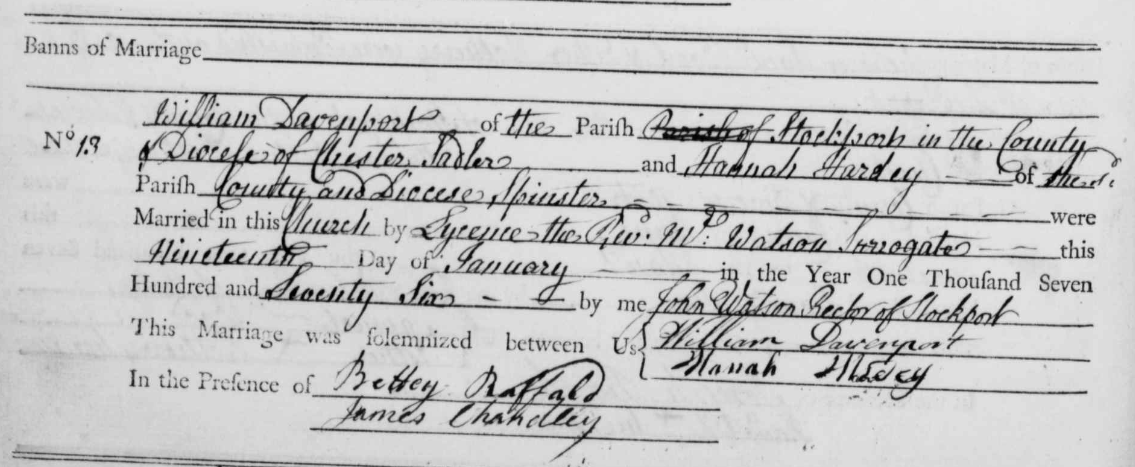 Banns of Marriage
William Davenport of the Pariſh Parish of Stockport in the County
No 13 & Diocese of Chester Sadler and Hannah Hardey of the sd
Pariſh County and Diocese Spinster were
Married in this Church by Lycence the Revd. Mr. Watson Surrogate this
Nineteenth Day of January in the Year One Thouſand Seven
Hundred and Seventy Six by me John Watson Rector of Stockport
This Marriage was ſolemnized between Us William Davenport
Hanah
In the Preſence of Bettey Raffald
James Chandley